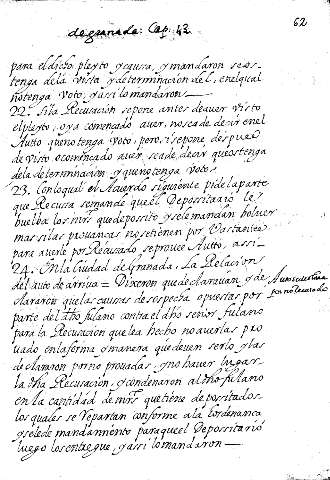 de granada. Cap. 43.
62
para el dicho pleyto y causa, y mandaron se abs
tenga de la vista y determinacion del, en el qual
no tenga voto, y assi lo mandaron
22. Si la Recusacion se pone antes de auer visto
el pleyto, o ya començado a uer, no se a de decir en el
Autto que no tenga voto, pero, si se pone despues
de visto o començado a uer, se a de decir que se abstenga
de la determinacion y que no tenga voto.
23. Con lo qual el Acuerdo siguiente pide la parte
que Recusa se mande que el Depositario le
buelba los mrs que deposito y se le mandan boluer
mas si las prouanças no se tienen por bastantes
para auerle por Recusado se prouee Autto, assi
24. En la Ciudad de Granada, La Relacion
del auto de arriua = Dixeron que declarauan, y de
clararon que las causas de sospecha opuestas por
parte del dho fulano contra el dho señor fulano
para la Recusacion que le a hecho no auerlas pro
uado en la forma y manera que deuen ser lo, y las
declararon por no prouadas, y no hauer lugar
la dha Recusacion, y condenaron al dho fulano
en la cantidad de mrs que tiene depositados
los quales se repartan conforme a la hordenanca
y se le de mandamiento para que el Depossitario
luego los entregue, y assi lo mandaron
por no recusado